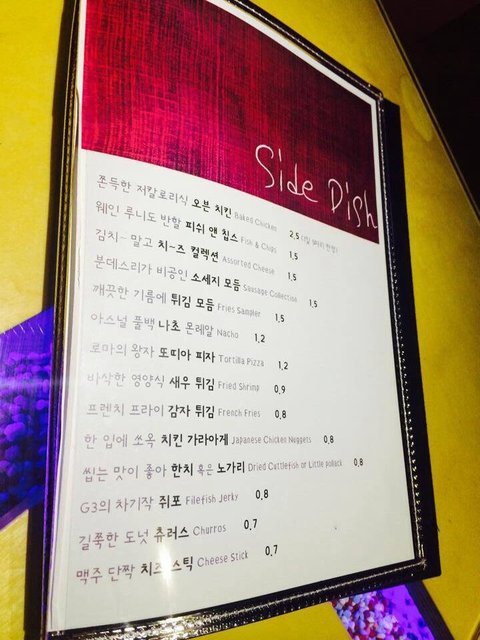 Side Dish
쫀득한 저칼로리식 오븐 치킨 Baked Chicken 2,5
웨인 루니도 반할 피쉬 앤 칩스 Fish & Chips 1,5
김치~ 말고 치~즈 컬렉션 Assorted Cheese 1,5
분데스리가 비공인 소세지 모듬 Sausage Collection 1,5
깨끗한 기름에 튀김 모듬 Fries Sampler 1,5
아스널 풀백 나초 몬레알 Nacho 1,2
로마의 왕자 또띠아 피자 Tortilla Pizza 1,2
바삭한 영양식 새우 튀김 Fried Shrimp 0,9
프렌치 프라이 감자 튀김 French Fries 0,8
한 입에 쏘옥 치킨 가라아게 Japanese Chicken Nuggets 0,8
씹는 맛이 좋아 한치 혹은 노가리 Dried Cuttlefish or Little pollack 0,8
G3의 차기작 쥐포 Filefish Jerky 0,8
길쭉한 도넛 츄러스 Churros 0,7
맥주 단짝 치즈 스틱 Cheese Stick 0,7